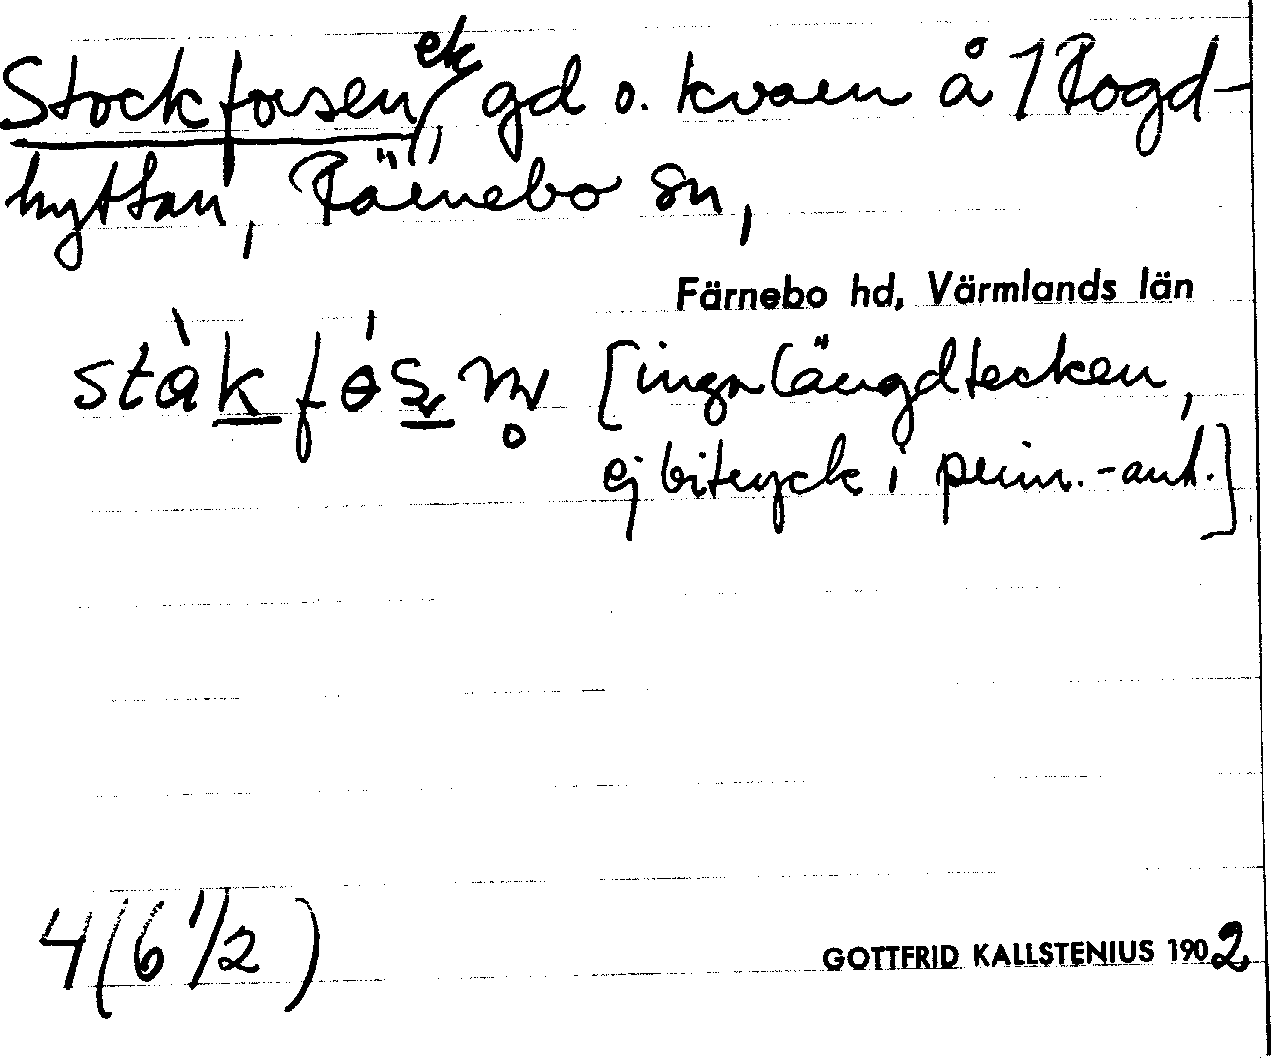 Stockforsen, ek gd o. kvarn å 1 Rogd-
hyttan, Rämebo sn,
Färnebo hd, Värmlands län
[inga längdtecken,
ej bitryck i prim.-ant.]
4(6 1/2)
GOTTFRID KALLSTENIUS 1902